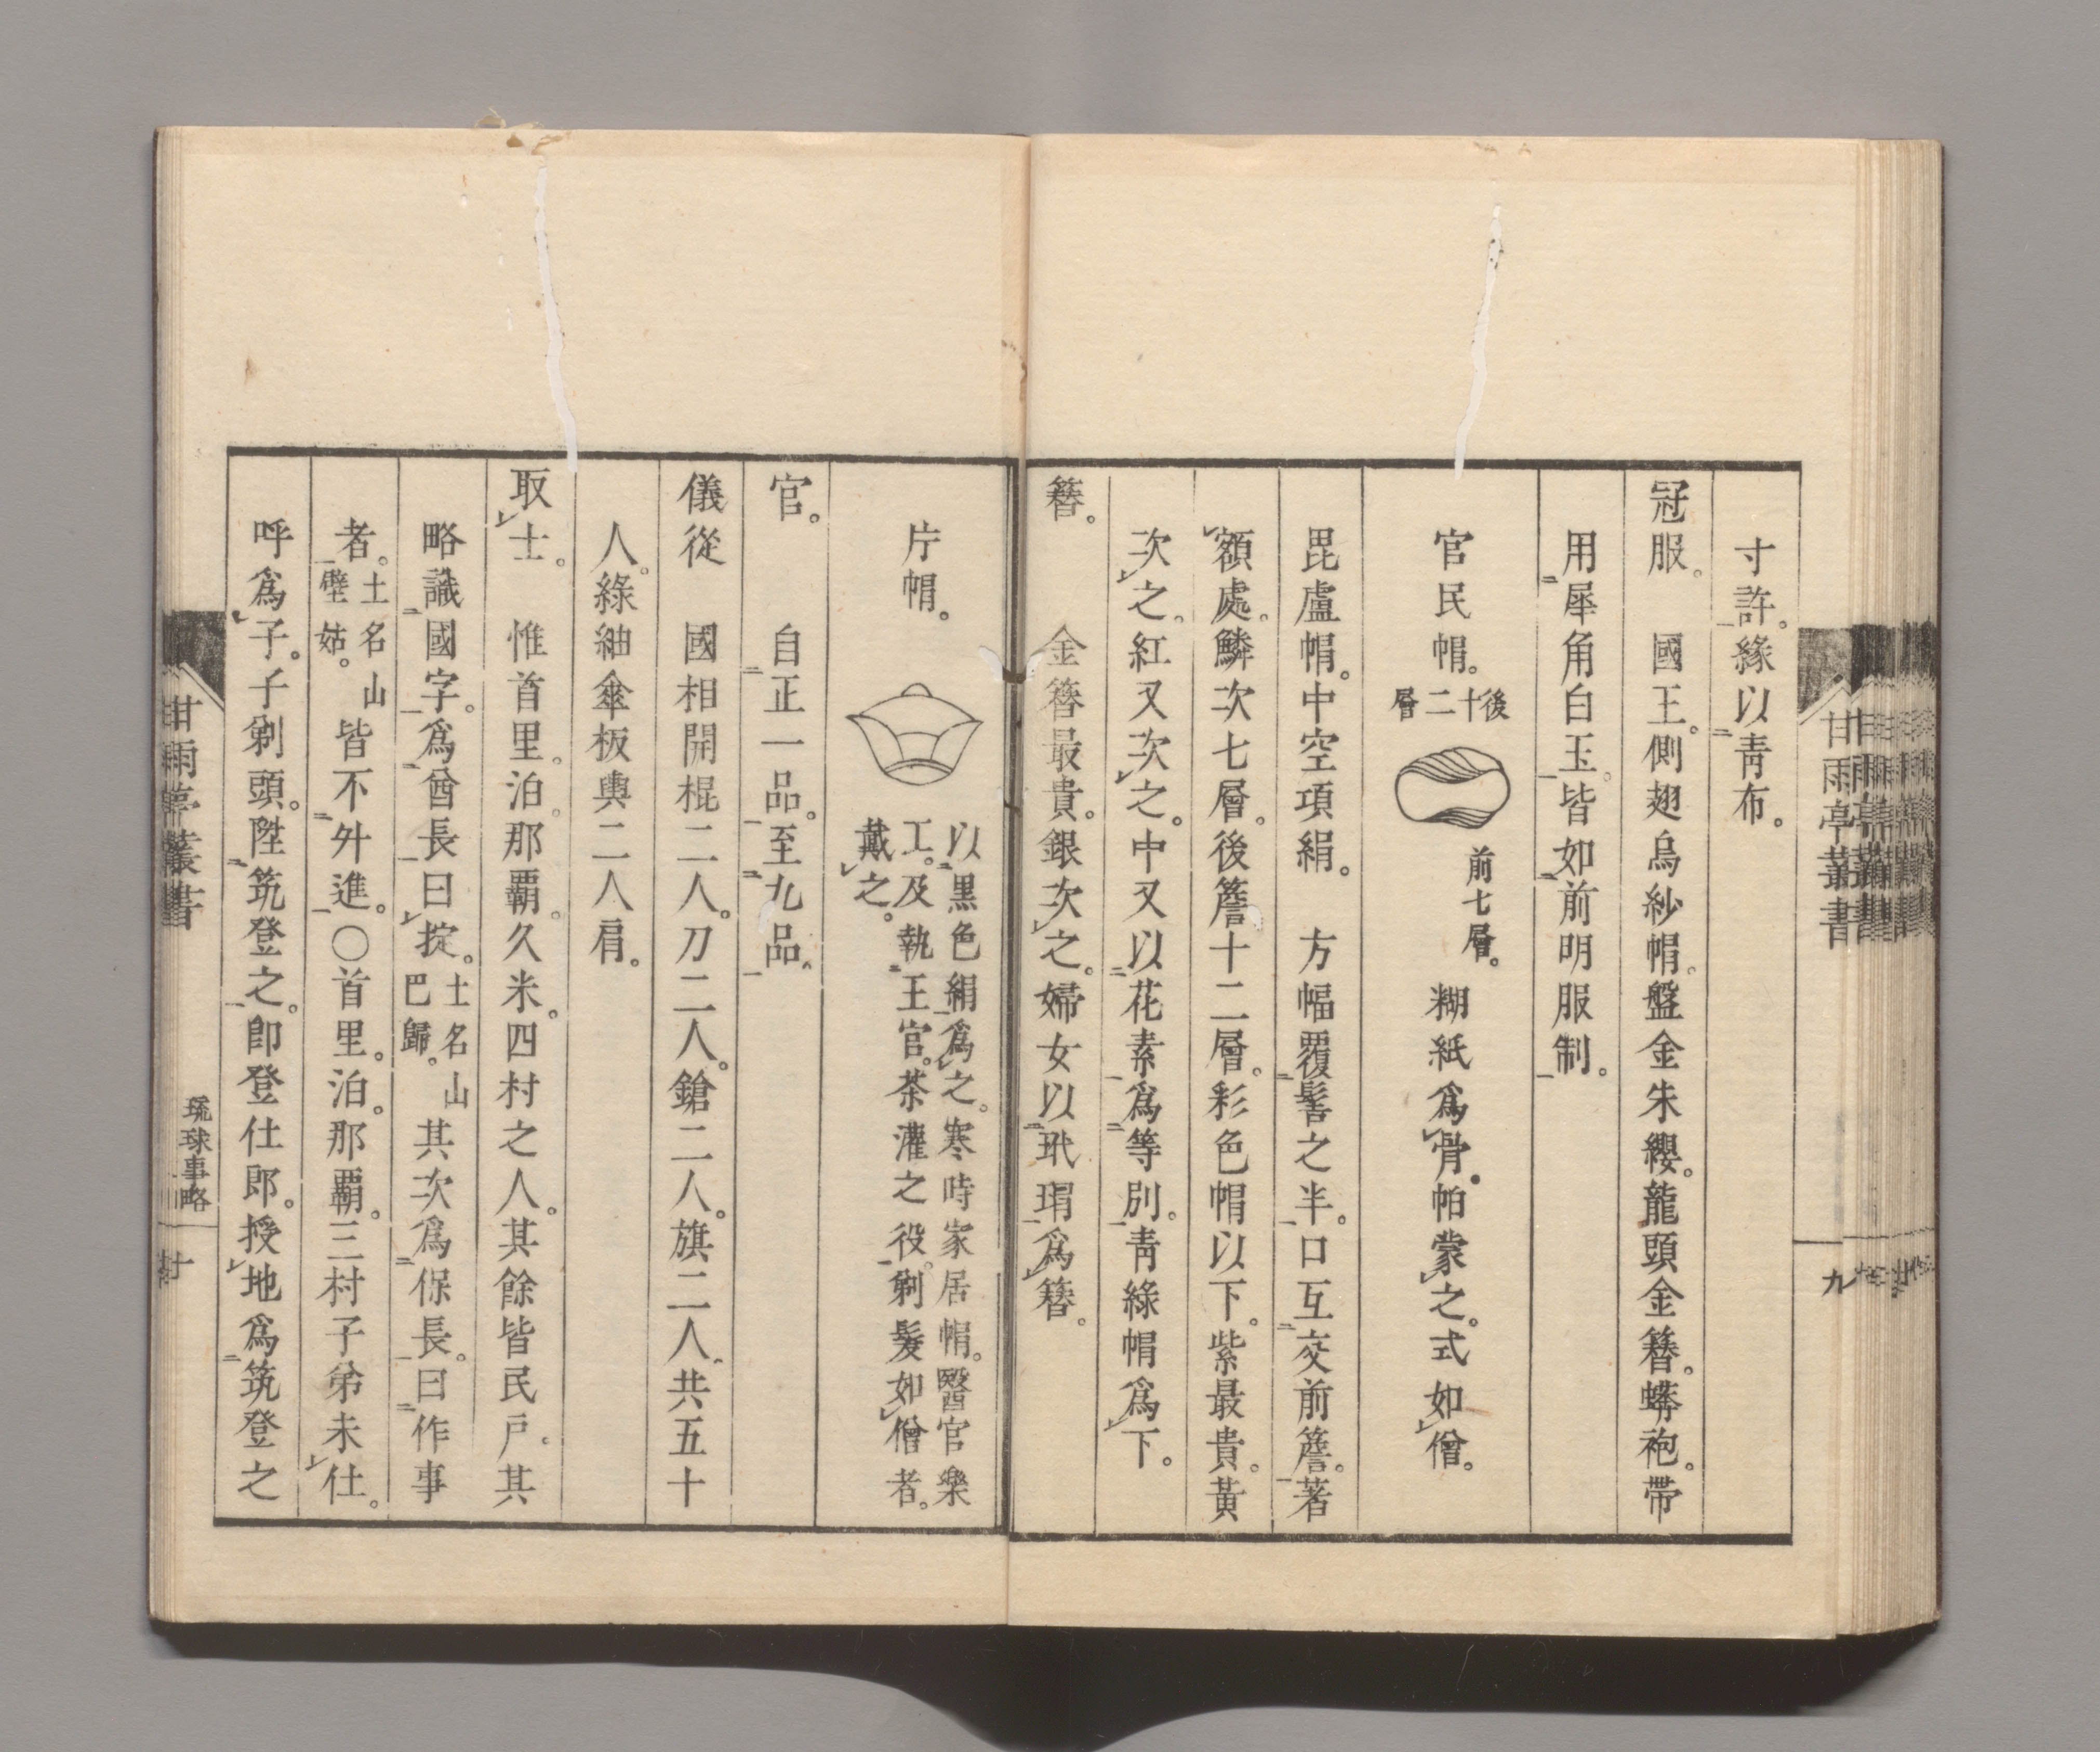 寸許。緣以靑布。
冠服。國王。側翅烏紗帽。盤金朱纓。龍頭金簪。蟒袍。帶
用犀角白玉。皆如前明服制。
官民帽。
後十二層
前七層。
糊紙爲骨。帕蒙之。式如僧。
毘盧帽。中空項絹。方幅覆髻之半。口互交前簷。著
額處。鱗次七層。後簷十二層。彩色帽以下。紫最貴。黃
次之。紅又次之。中又以花素爲等別。靑綠帽爲下。
簪。金簪最貴。銀次之。婦女以玳瑁爲簪。
片帽。
以黒色絹爲之。寒時家居帽。醫官樂
工。及執王官。茶灌之役。剃髮如僧者。
戴之。
官。自正一品。至九品。
儀從 國相開棍二人。刀二人。鎗二人。旗二人。共五十
人。綠紬傘板輿二人肩。
取士。惟首里。泊。那覇。久米。四村之人。其餘皆民戶。其
略識國字。爲酋長曰掟。土名山巴歸。其次爲保長。曰作事
者。土名山壁姑。皆不外進。〇首里。泊。那覇。三村子弟未仕。
呼爲子。子剃頭。陞筑登之。卽登仕郎。授地爲筑登之
甘雨亭叢書
九
甘雨亭叢書
琉球事略
十